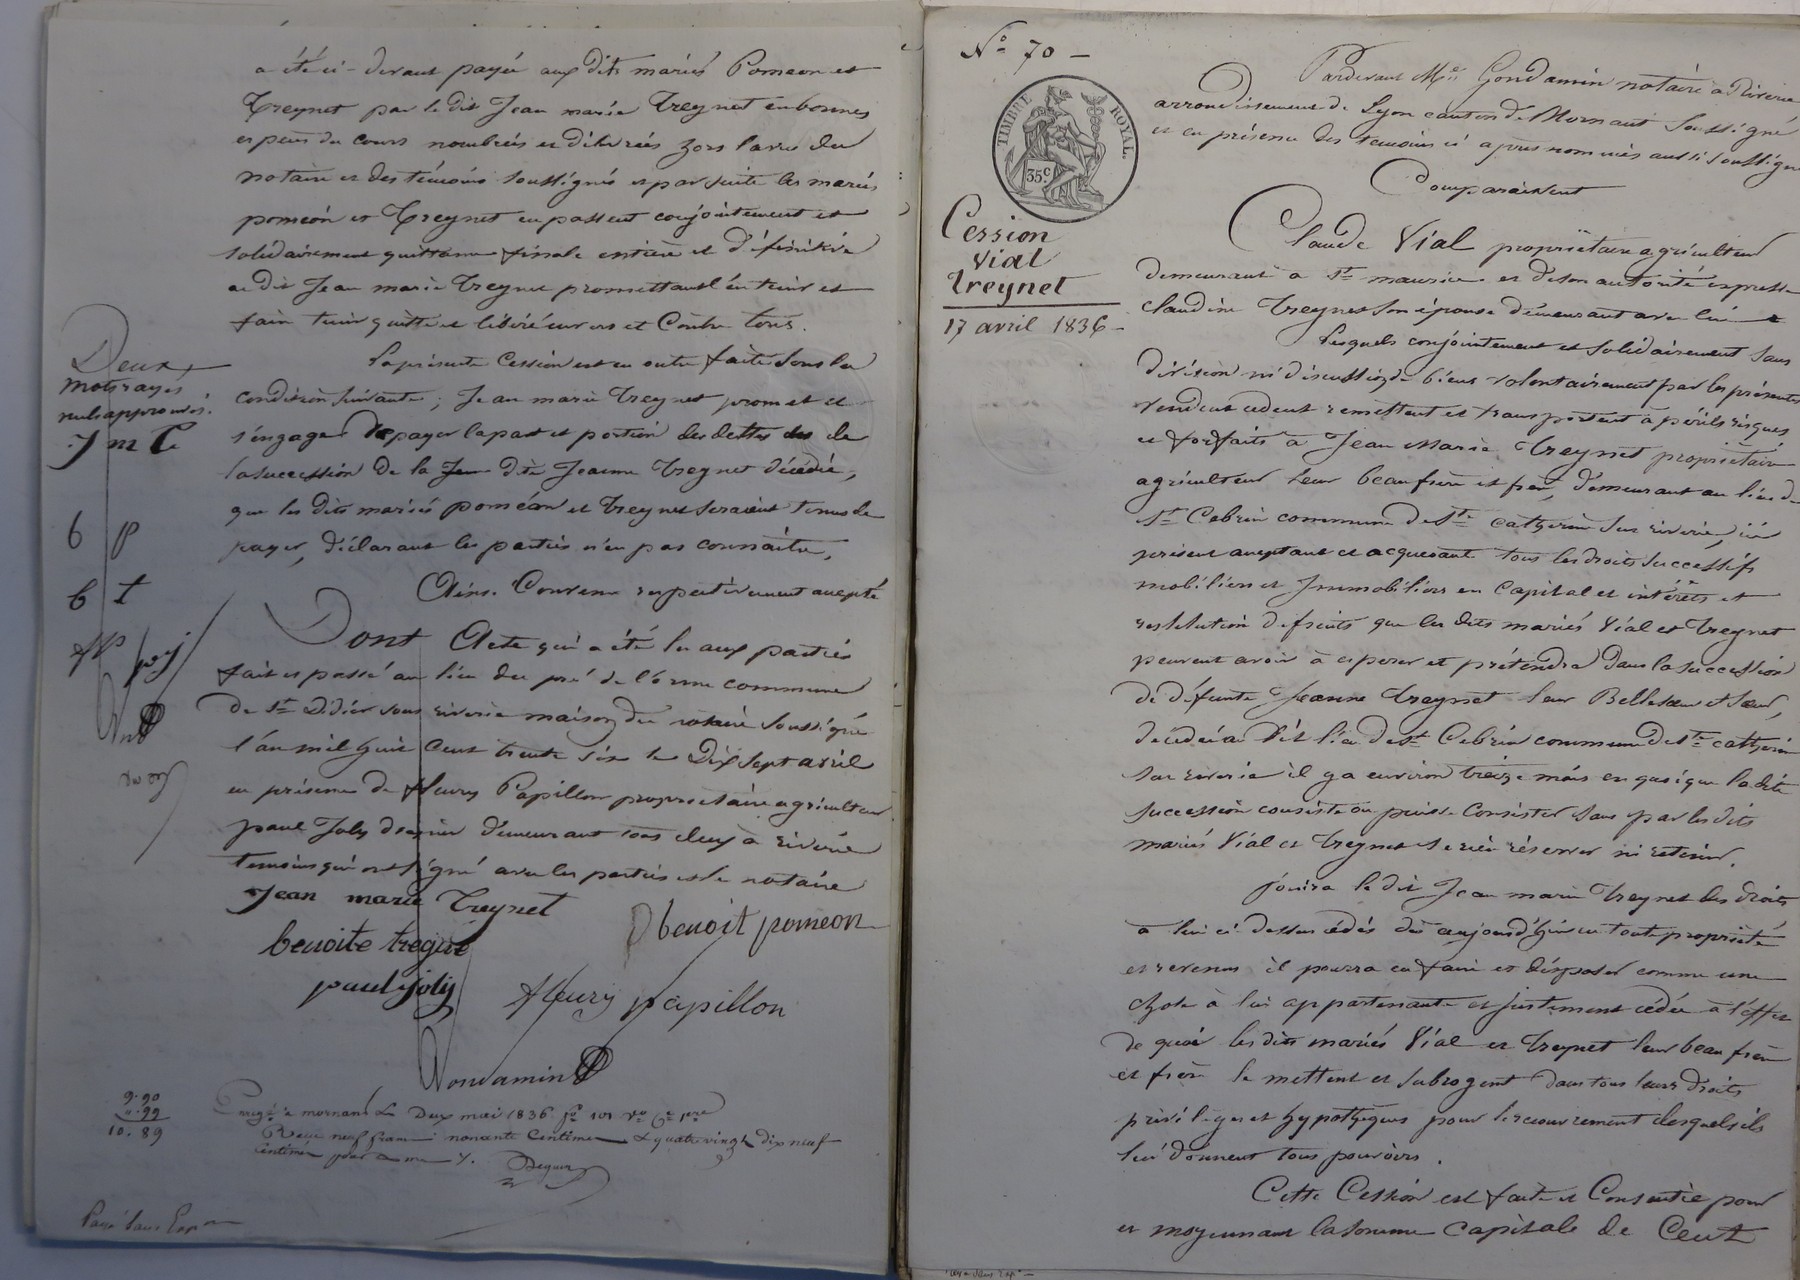 a été ci-devant payée aux dits mariés Pomeon et
Treynet par le dit Jean marie Treynet en bonnes
espèces du cours nombrées et délivrées hors la vue du
notaire et des témoins soussignés et par suite les mariés
poméon et Treynet en passent conjointement et
solidairement quittance finale entière et définitive
au dit Jean marie Treynet promettant l'en tenir et
faire tenir quitte et libéré envers et Contre tous.
La présente Cession est en outre faite sous la
condition suivante ; Jean marie Treynet promet et
s'engage de payer la part et portion des dettes de
la succession de la dite Jeanne Treynet décédée,
que les dits mariés poméon et Treynet seraient tenus de
payer, déclarant les parties n'en pas connaître,
Ainsi Convenu respectivement accepté
Dont Acte qui a été lu aux parties
fait et passé au lieu du pré de l'orme commune
de St Didier sous riverie maison du notaire soussigné
l'an mil huit Cent trente six le Dix Sept avril
en présence de fleury Papillon propriétaire agriculteur
paul Joly demeurant tous deux à riverie
temoins qui ont signé avec les parties et le notaire
Jean marie Treynet
benoit pomeon
benoite tregné
paul joly
fleury papillon
Gondamin
Deux
mots rayés
nuls approuvés.
J m T
b p
b t
f p
p j
9.90
".99
10.89
Enregé à mornant Le Deux mai 1836 fo 101 Vo Ce 1re
Reçu neuf francs nonante Centimes & quatre vingt dix neuf
Centimes pour
Payé sans Exp
No 70
TIMBRE ROYAL.
35c
Cession
Vial
Treynet
17 avril 1836
Pardevant Me Gondamin notaire à Riverie
arrondissement de Lyon canton de Mornant Soussigné
et en présence des temoins ci après nommés aussi soussignés
Comparaissent
Claude Vial propriétaire agriculteur
demeurant à St maurice et de son autorité expresse
claudine Treynet son épouse demeurant avec lui
Lesquels conjointement et solidairement sans
division ni discussion de biens volontairement par les présentes
vendent cedent remettent et transportent à périls risques
et forfaits à Jean Marie Treynet propriétaire
agriculteur leur beau frère et frère, demeurant au lieu de
St Cebrin commune de Ste catherine sur riverie, ici
présent acceptant et acquerant tous les droits Successifs
mobiliers et Immobiliers en Capital et intérêts et
restitution de fruits que les dits mariés Vial et Treynet
peuvent avoir à esperer et prétendre dans la succession
de défunte Jeanne Treynet leur Bellesœur et sœur,
decedée au dit lieu de St Cebrin commune de Ste catherine
sur riverie il y a environ treize mois en quoi que la dite
succession consiste ou puisse Consister sans par les dits
mariés Vial et Treynet se rien réserver ni retenir.
Jouira le dit Jean marie Treynet des droits
à lui ci dessus cédés dès aujourd'hui en toute propriété
et revenus il pourra en faire et disposer comme une
chose à lui appartenante et justement cédée à l'effet
de quoi les dits mariés Vial et Treynet leur beau frère
et frère le mettent et subrogent dans tous leurs droits
privilèges et hypothèques pour le recouvrement desquels ils
lui donnent tous pouvoirs.
Cette Cession est faite et Consentie pour
et moyennant la somme capitale de Cent